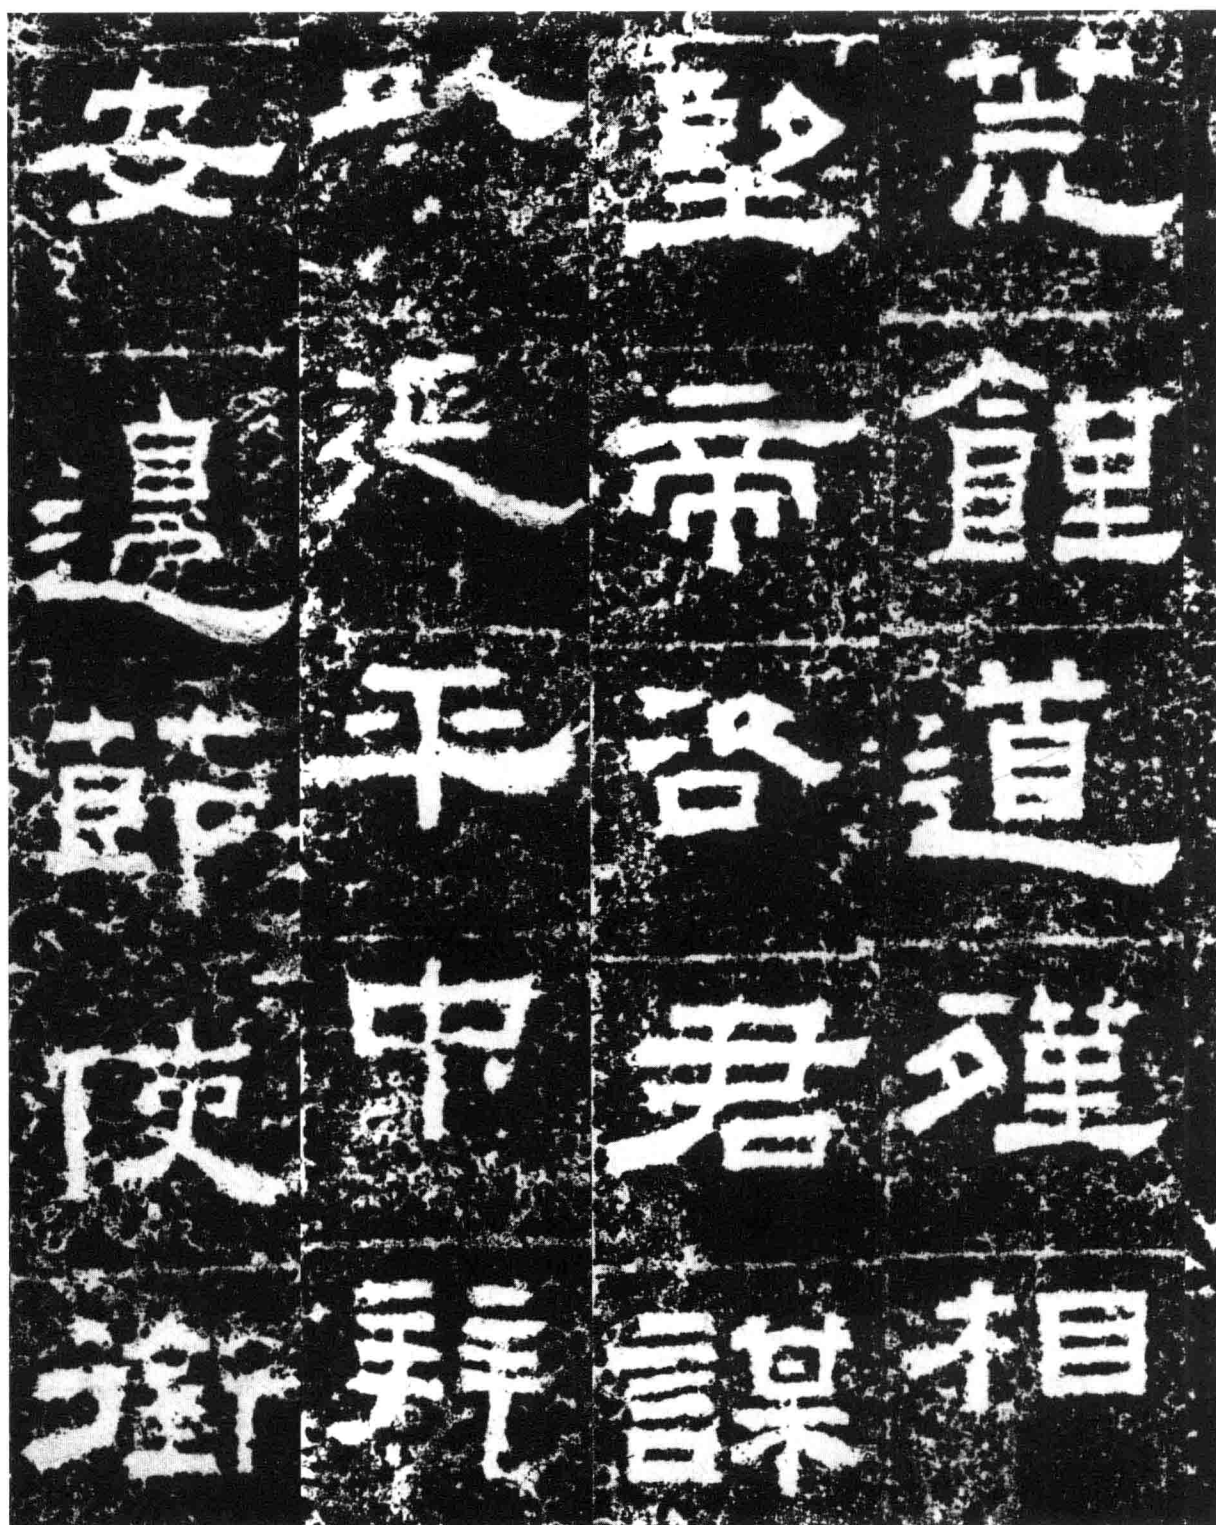 荒道殣相
聖帝咨君謀
以延平中拜
安邊節使銜